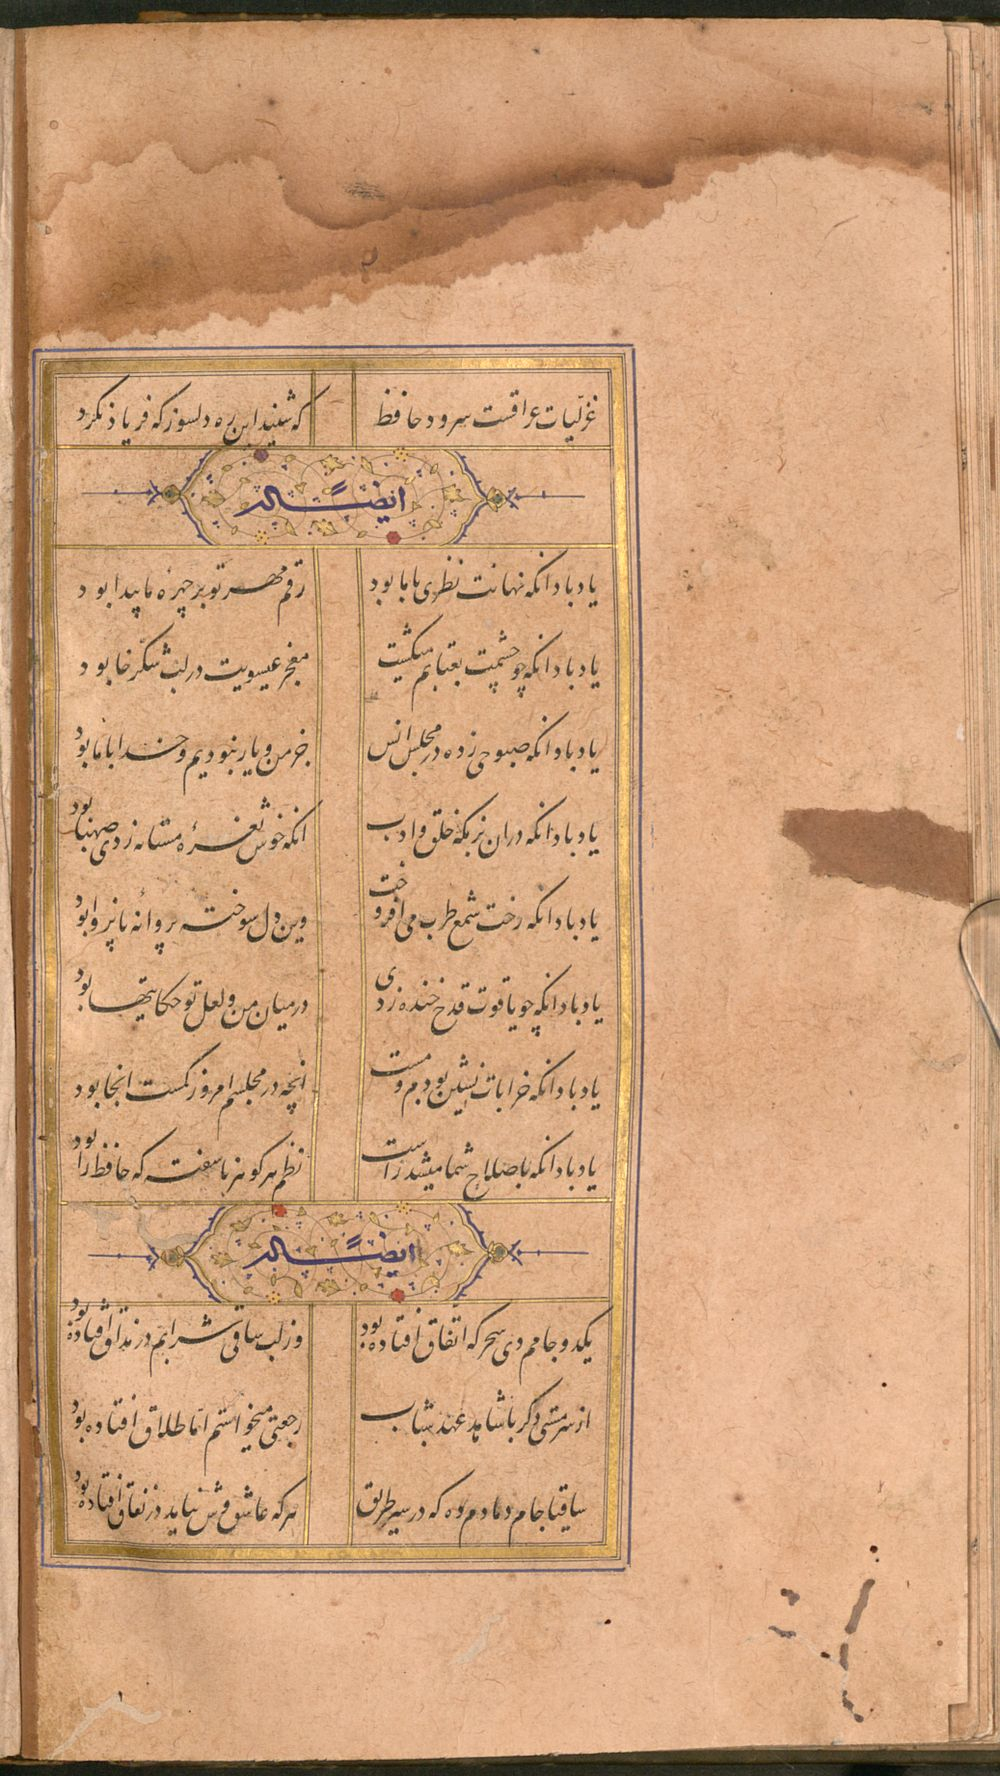 غزلیات عراقست سرود حافظ که شنید این ره دلسوز که فریاد نکرد
ایضًا له
یاد باد انکه نهانت نظری با ما بود رقم مهر تو بر چهرهٔ ما پیدا بود
یاد باد انکه چو چشمت بعتابم میکشت معجز عیسویت در لب شکرخا بود
یاد باد انکه صبوحی زده در مجلس انس جز من و یار نبودیم و خدا با ما بود
یاد باد انکه در ان بزمکه خلق و ادب انکه خوش نعرهٔ مستانه زدی صهبا بود
یاد باد انکه رخت شمع طرب می افروخت وین دل سوخته پروانهٔ ناپروا بود
یاد باد انکه چو یاقوت قدح خنده زدی در میان من و لعل تو حکایتها بود
یاد باد انکه خرابات نشین بودم و مست انچه در مجلسم امروز کمست انجا بود
یاد باد انکه باصلاح شما میشد راست نظم هر کوهر ناسفته که حافظ را بود
ایضًا له
یکدو جامم دی سحرکه اتفاق افتاده بود وز لب ساقی شرابم در مذاق افتاده بود
از سر مستی دکر با شاهد عهد شباب رجعتی میخواستم اما طلاق افتاده بود
ساقیا جام دمادم ده که در سیر طریق هر که عاشق وش نیاید در نفاق افتاده بود